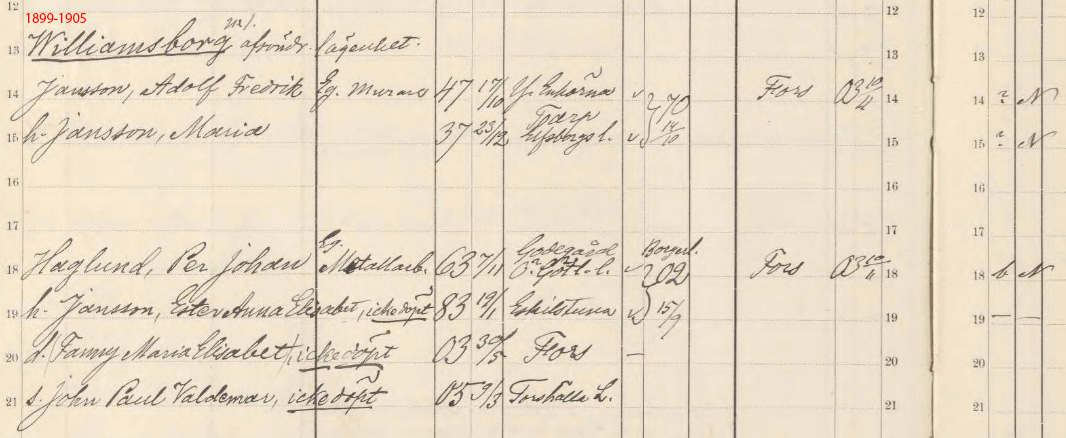 1899-1905
12 12 12
13 Williamsborg m/. afsöndr. lägenhet. 13 13
14 Jansson, Adolf Fredrik Eg. Murare 47 17/10 Y. Enhörna 70 Fors 03 10/11 14 14 N
Tarp
15 h. Jansson, Maria 37 23/12 Elfsborgs l. 14/10 15 15 N
16 16 16
17 17 17
Eg. Godegård Borgerl.
18 Haglund, Per Johan Metallarb. 63 7/11 Ö. Götl. l. 02 Fors 03 10/11 18 18 b N
19 h. Jansson, Ester Anna Elisabet, icke döpt 83 19/1 Eskilstuna 15/9 19 19 — —
20 d. Fanny Maria Elisabet, icke döpt 03 30/5 Fors — 20 20
21 s. John Paul Valdemar, icke döpt 05 9/3 Torshälla L. 21 21